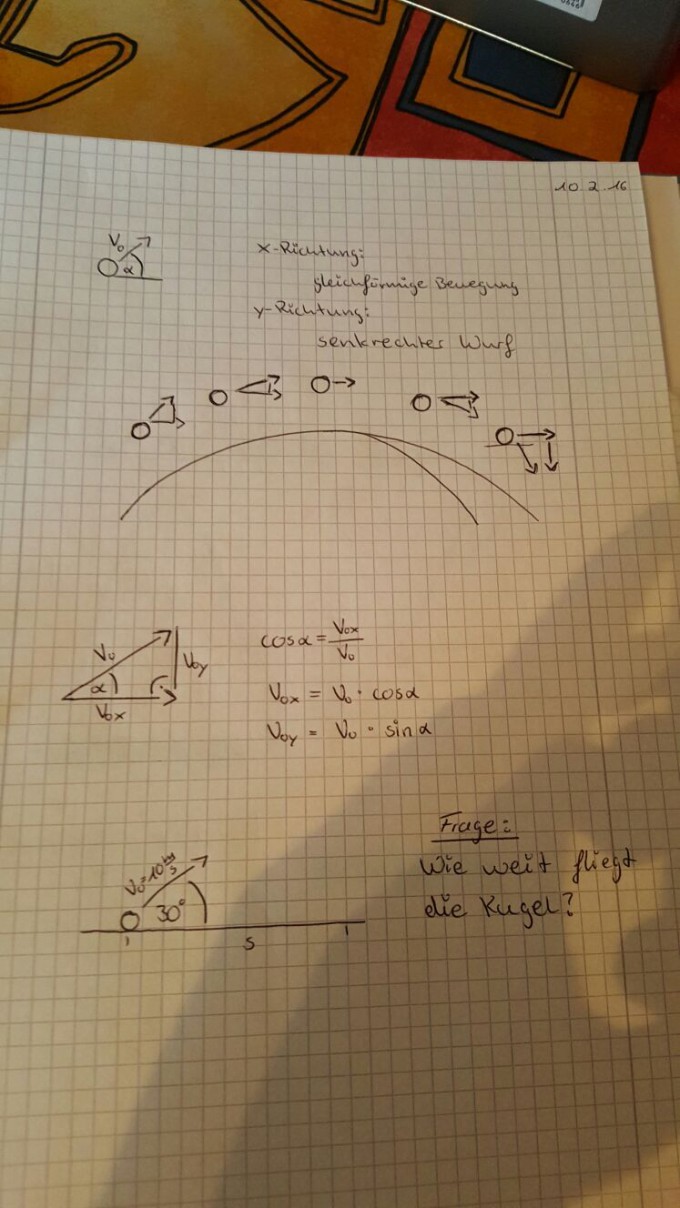 10.2.16
V₀
α
x-Richtung:
gleichförmige Bewegung
y-Richtung:
senkrechter Wurf
V₀
α
V₀y
V₀x
cosα = V₀x / V₀
V₀x = V₀ · cosα
V₀y = V₀ · sinα
Frage:
Wie weit fliegt
die Kugel?
30°
s